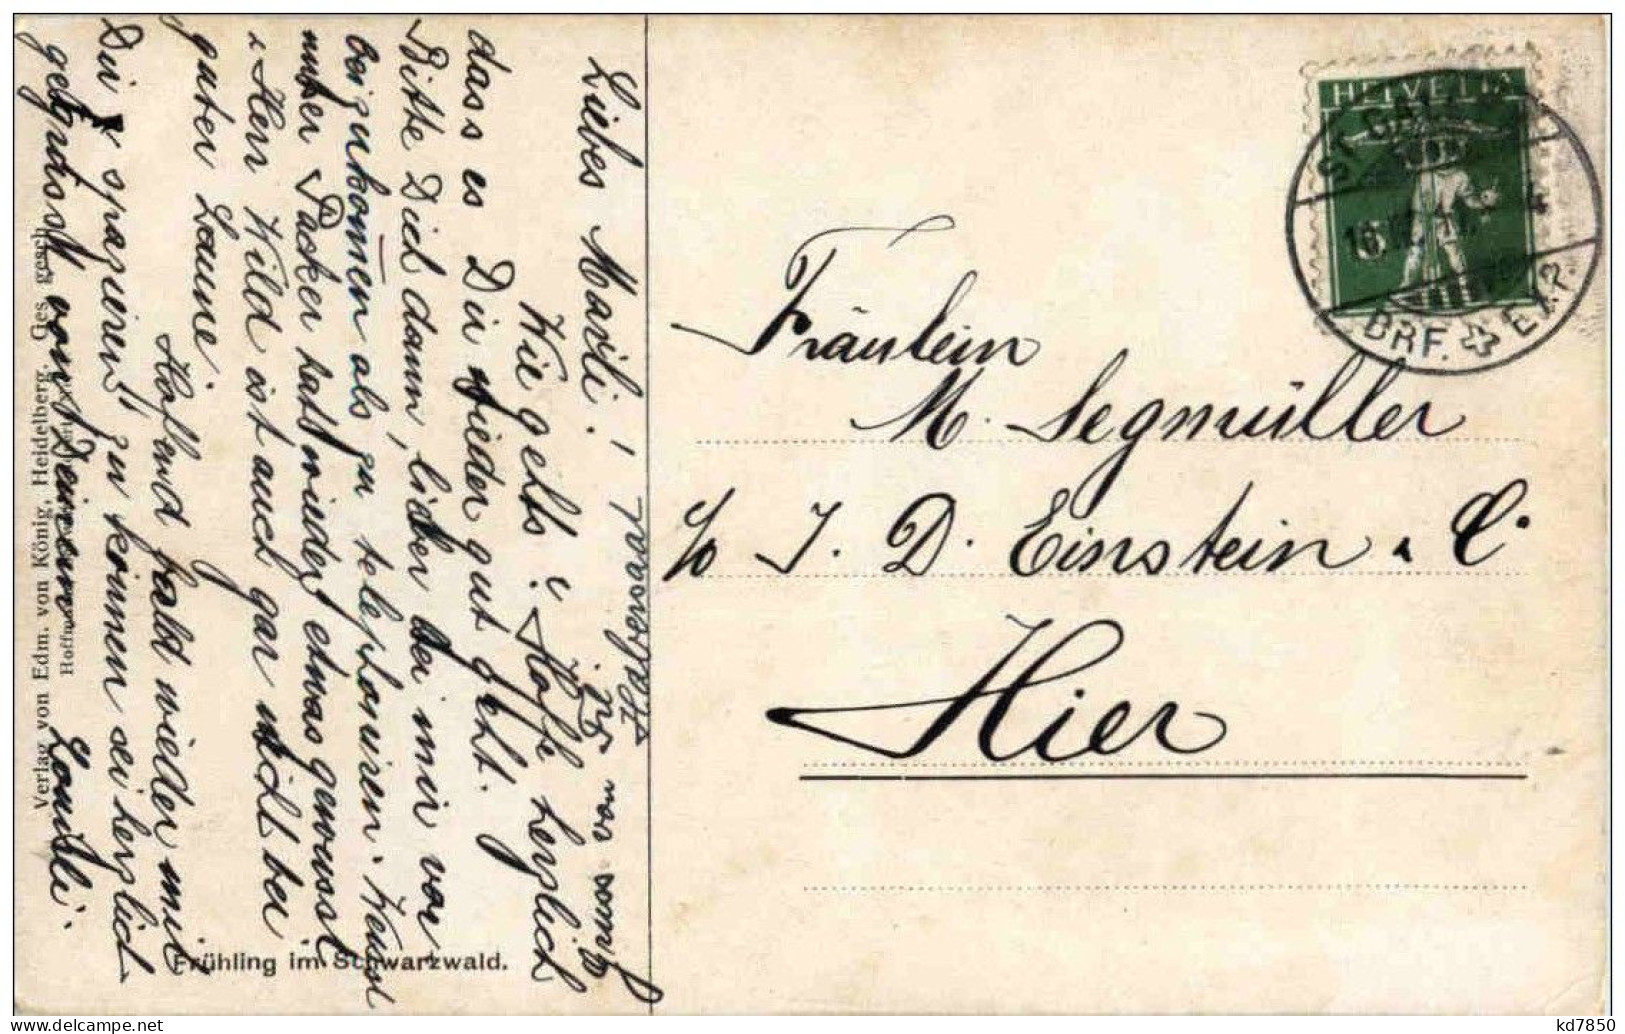 Liebes Marili!
Wie gehts? Hoffe herzlich
dass es Dir wieder gut geht.
Bitte Dich dann, lieber bei mir vor
beizukommen als zu telephonieren.
unser Packer hats wieder etwas gewusst
& Herr Wild ist auch gar nicht bei
guter Laune.
Hoffend bald wieder mit
Dir spazieren zu können sei herzlich
gegrüsst von Deinem
Louisli.
Verlag von Edm. von König, Heidelberg. Ges. gesch.
Frühling im Schwarzwald.
HELVETIA
ST. GALLEN
BRF. EXP.
Fräulein
M. Segmüller
c/o J. D. Einstein & C°
Hier
kd7850